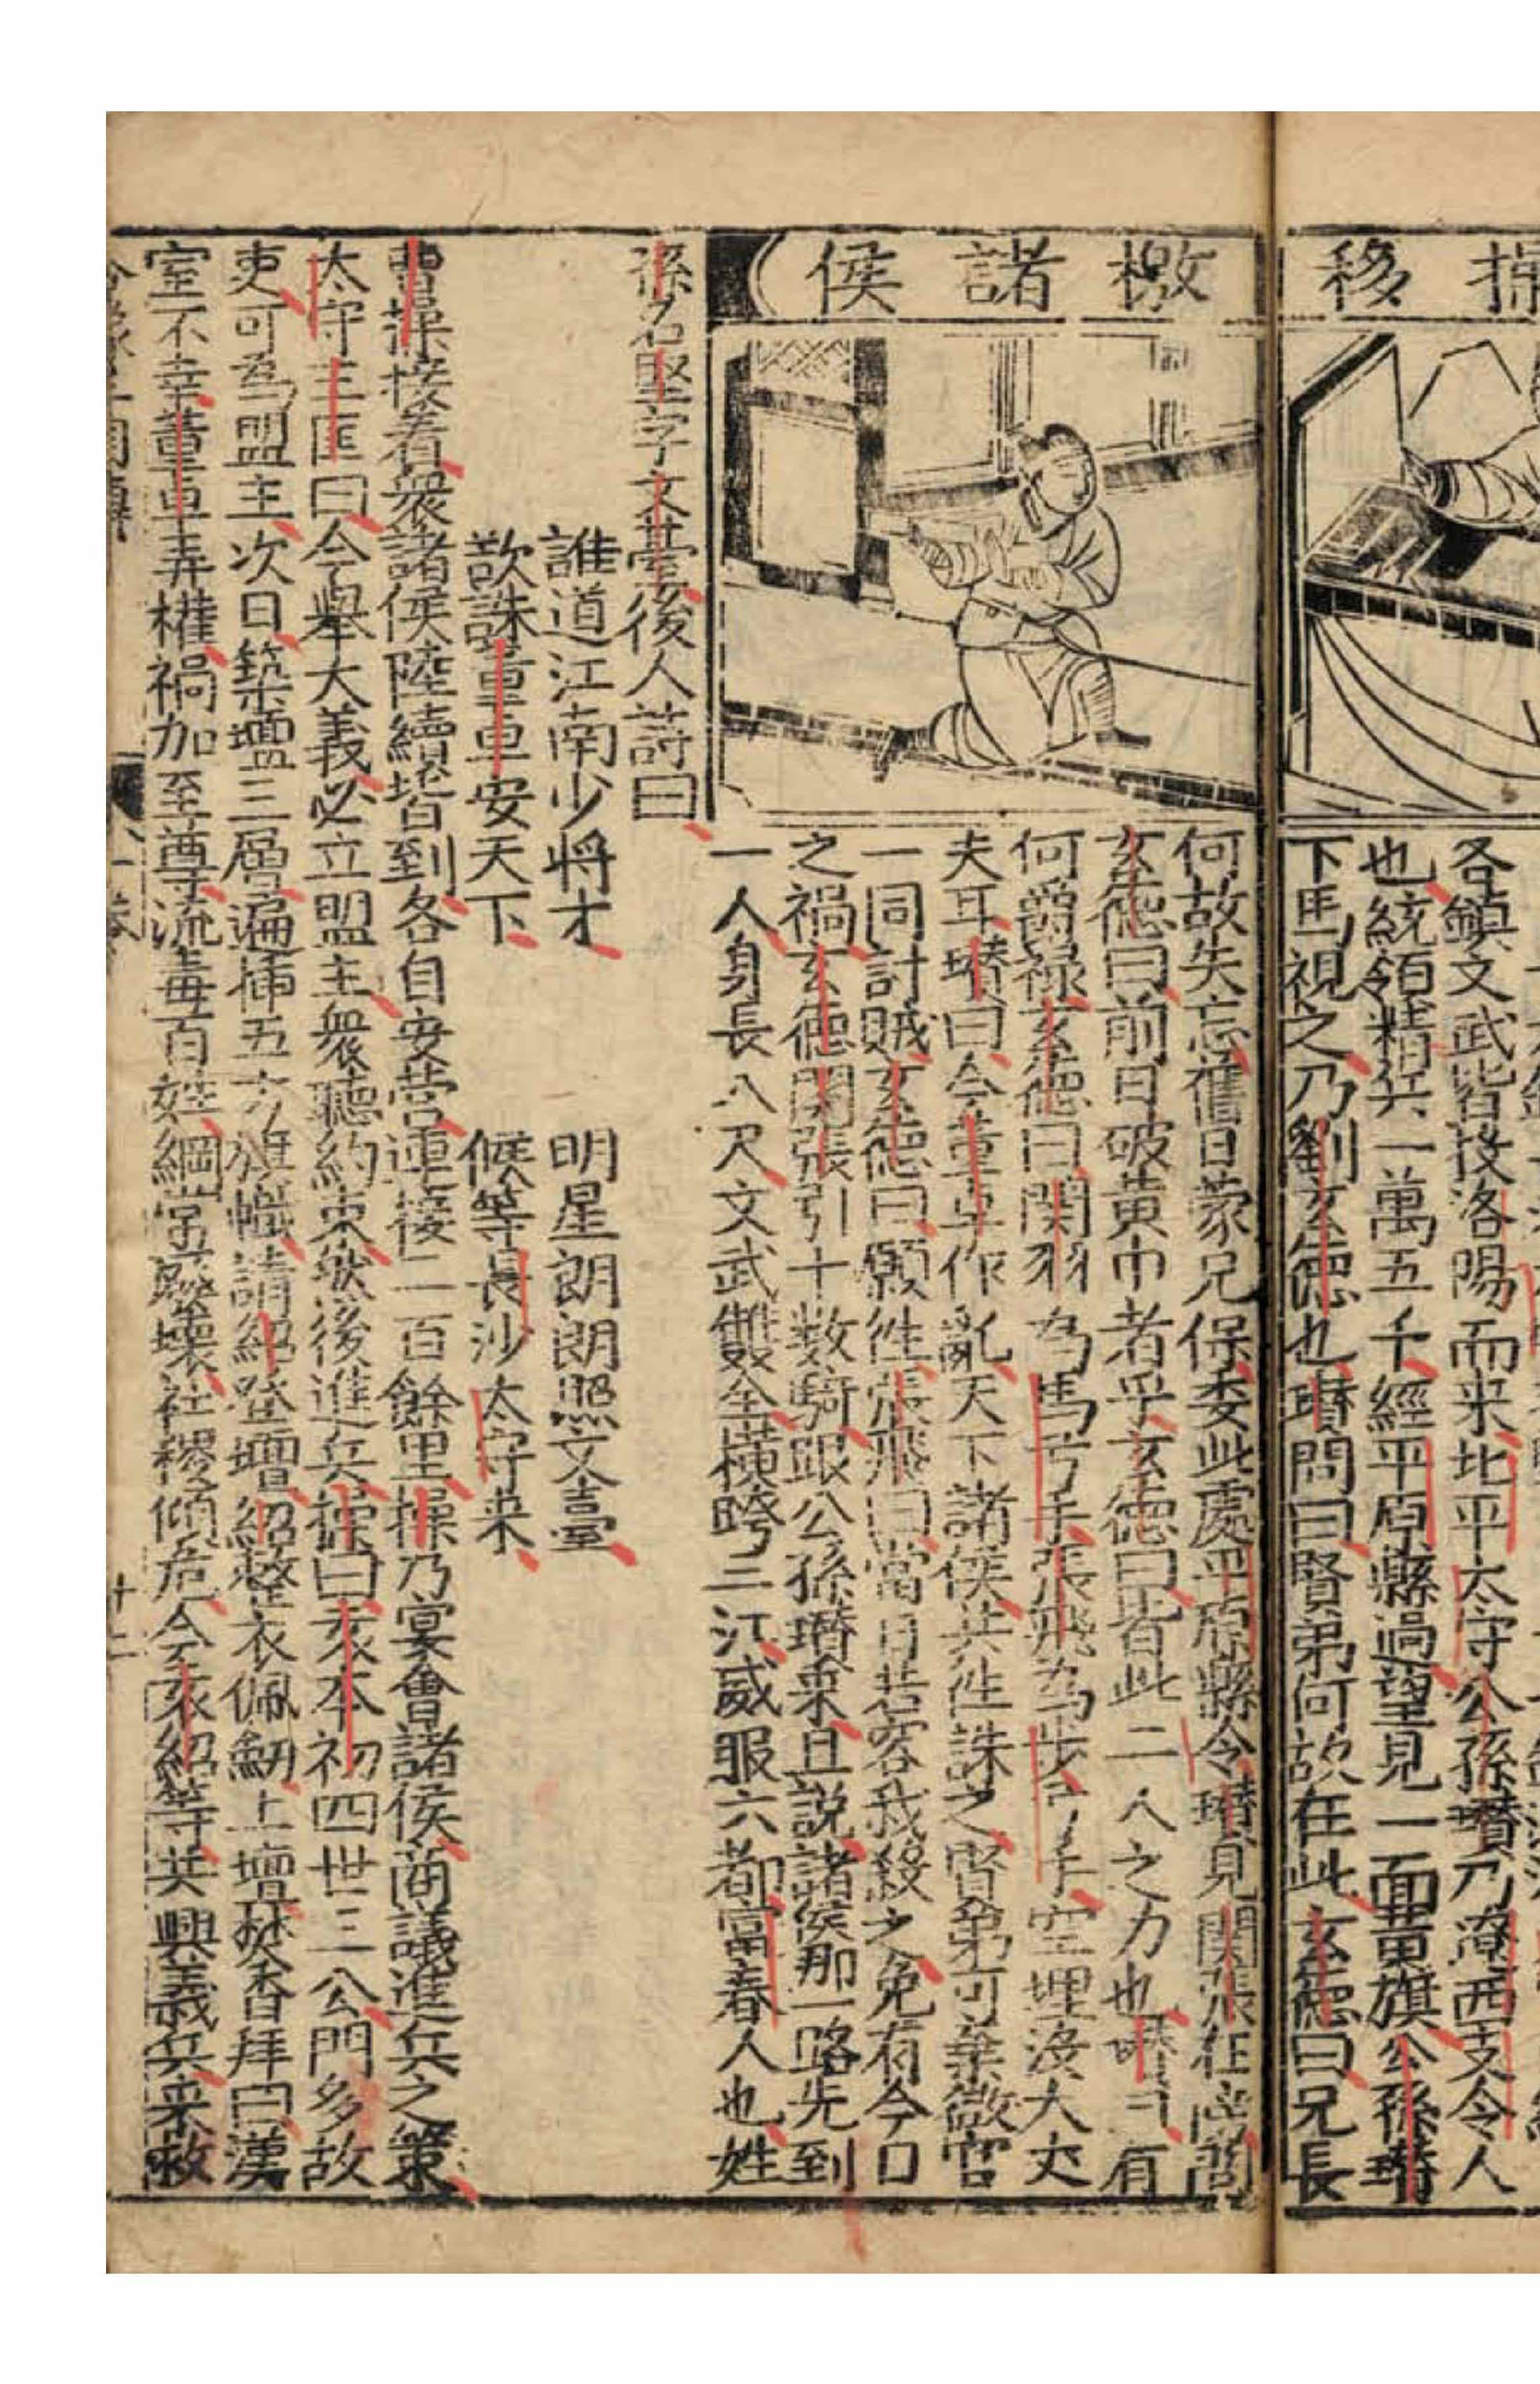 操移
各鎮文武皆投洛陽而来北平太守公孫瓚乃遼西支令人
也統領精兵一萬五千經平原縣過望見一面黃旗公孫瓚
下馬視之乃劉玄德也瓚問曰賢弟何故在此玄德曰兄長
檄諸侯
何故失忘舊日蒙兄保委此處平原縣令瓚見関張在傍問
玄德曰前日破黃巾者乎玄德曰皆此二人之力也瓚曰有
何爵禄玄德曰関羽為馬弓手張飛為步弓手空埋没大丈
夫耳瓚曰今董卓作乱天下諸侯共往誅之賢弟可棄微官
一同討賊玄德曰願往張飛曰當日若容我殺之免有今日
之禍玄德関張引十数騎跟公孫瓚来且説諸侯那一路先到
一人身長八尺文武雙全橫跨三江威服六都富春人也姓
孫名堅字文臺後人詩曰
誰道江南少將才 明星朗朗照文臺
欲誅董卓安天下 候等長沙太守来
曹操接着衆諸侯陸續皆到各自安营連接二百餘里操乃宴會諸侯商議進兵之策
太守王匡曰今舉大義必立盟主衆聽約束然後進兵操曰袁本初四世三公門多故
吏可為盟主次日築壇三層遍揷五方旗幟請紹登壇紹整衣佩劒上壇焚香拜曰漢
室不幸董卓弄權禍加至尊流毒百姓綱常墜壞社稷傾危今袁紹等共興義兵来救
一卷
十二